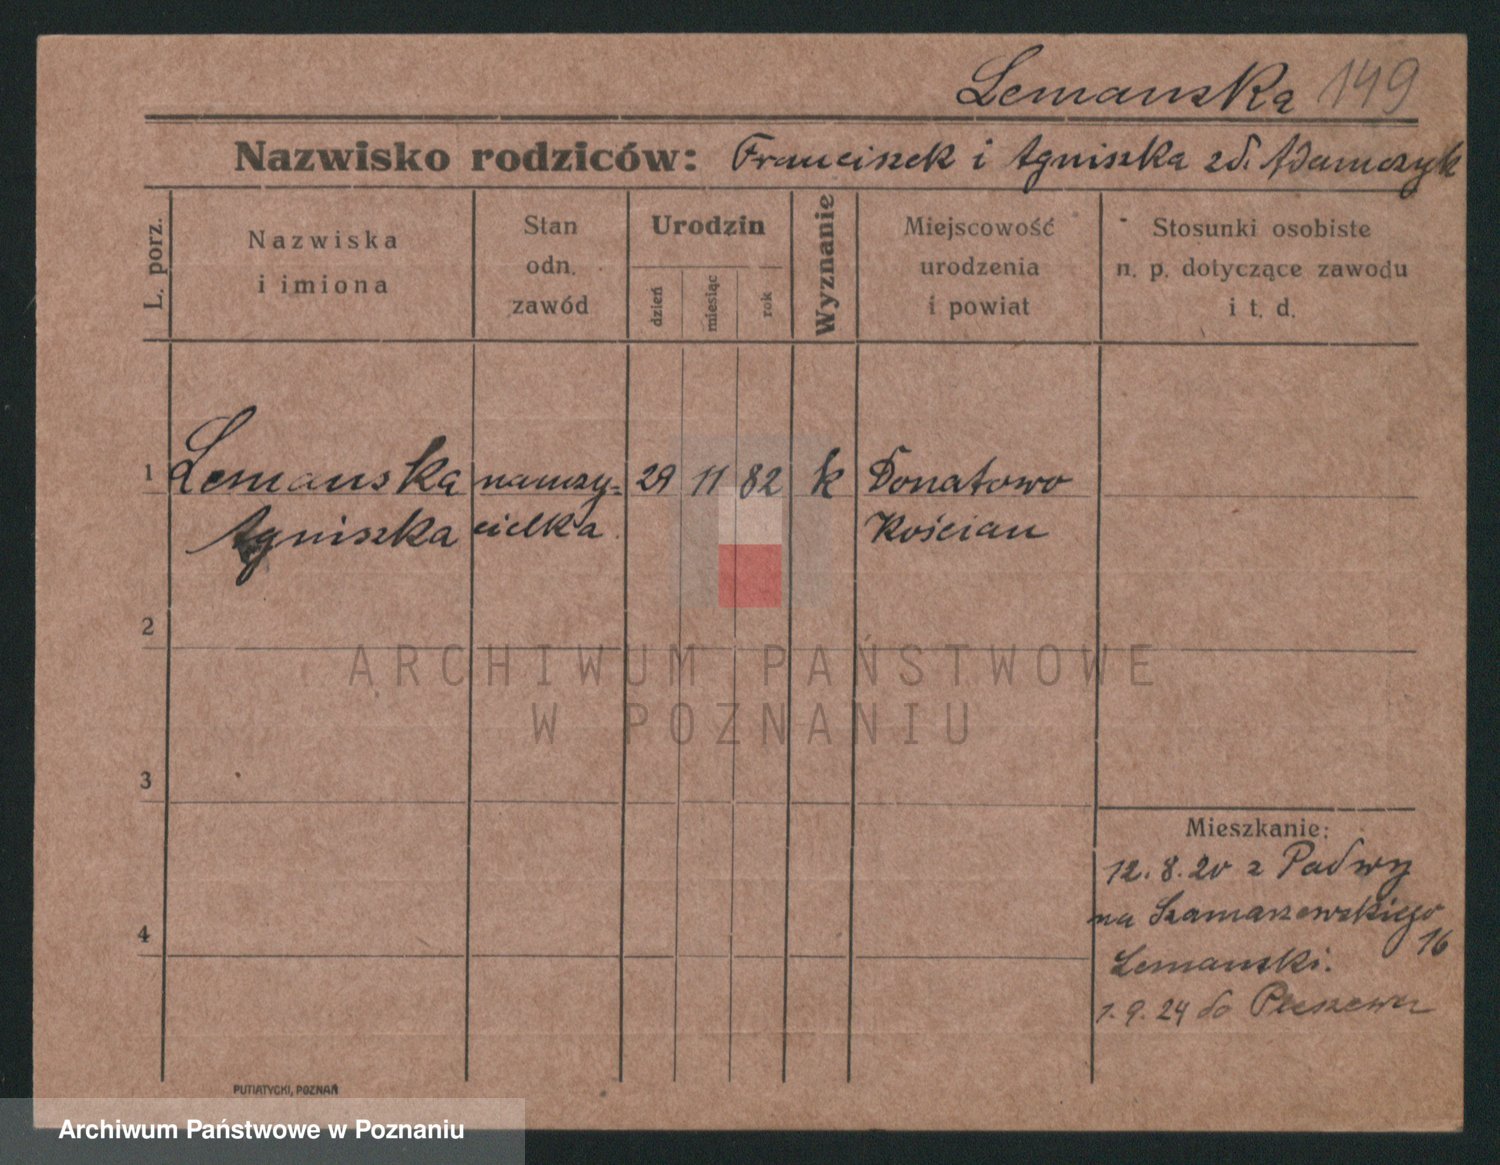 Lemanska 149
Nazwisko rodziców: Franciszek i Agniszka zd. Adamczyk
L. porz.
Nazwiska
i imiona
Stan
odn.
zawód
Urodzin
dzień
miesiąc
rok
Wyznanie
Miejscowość
urodzenia
i powiat
Stosunki osobiste
n. p. dotyczące zawodu
i t. d.
1 Lemanska nauczy- 29 11 82 k Donatowo
Agniszka cielka Kościan
2
ARCHIWUM PAŃSTWOWE
W POZNANIU
3
Mieszkanie:
12. 8. 20 z Padwy
na Szamarzewskiego
16
4
Lemanski.
1. 9. 24 do Pleszewa
PUTIATYCKI, POZNAŃ
Archiwum Państwowe w Poznaniu